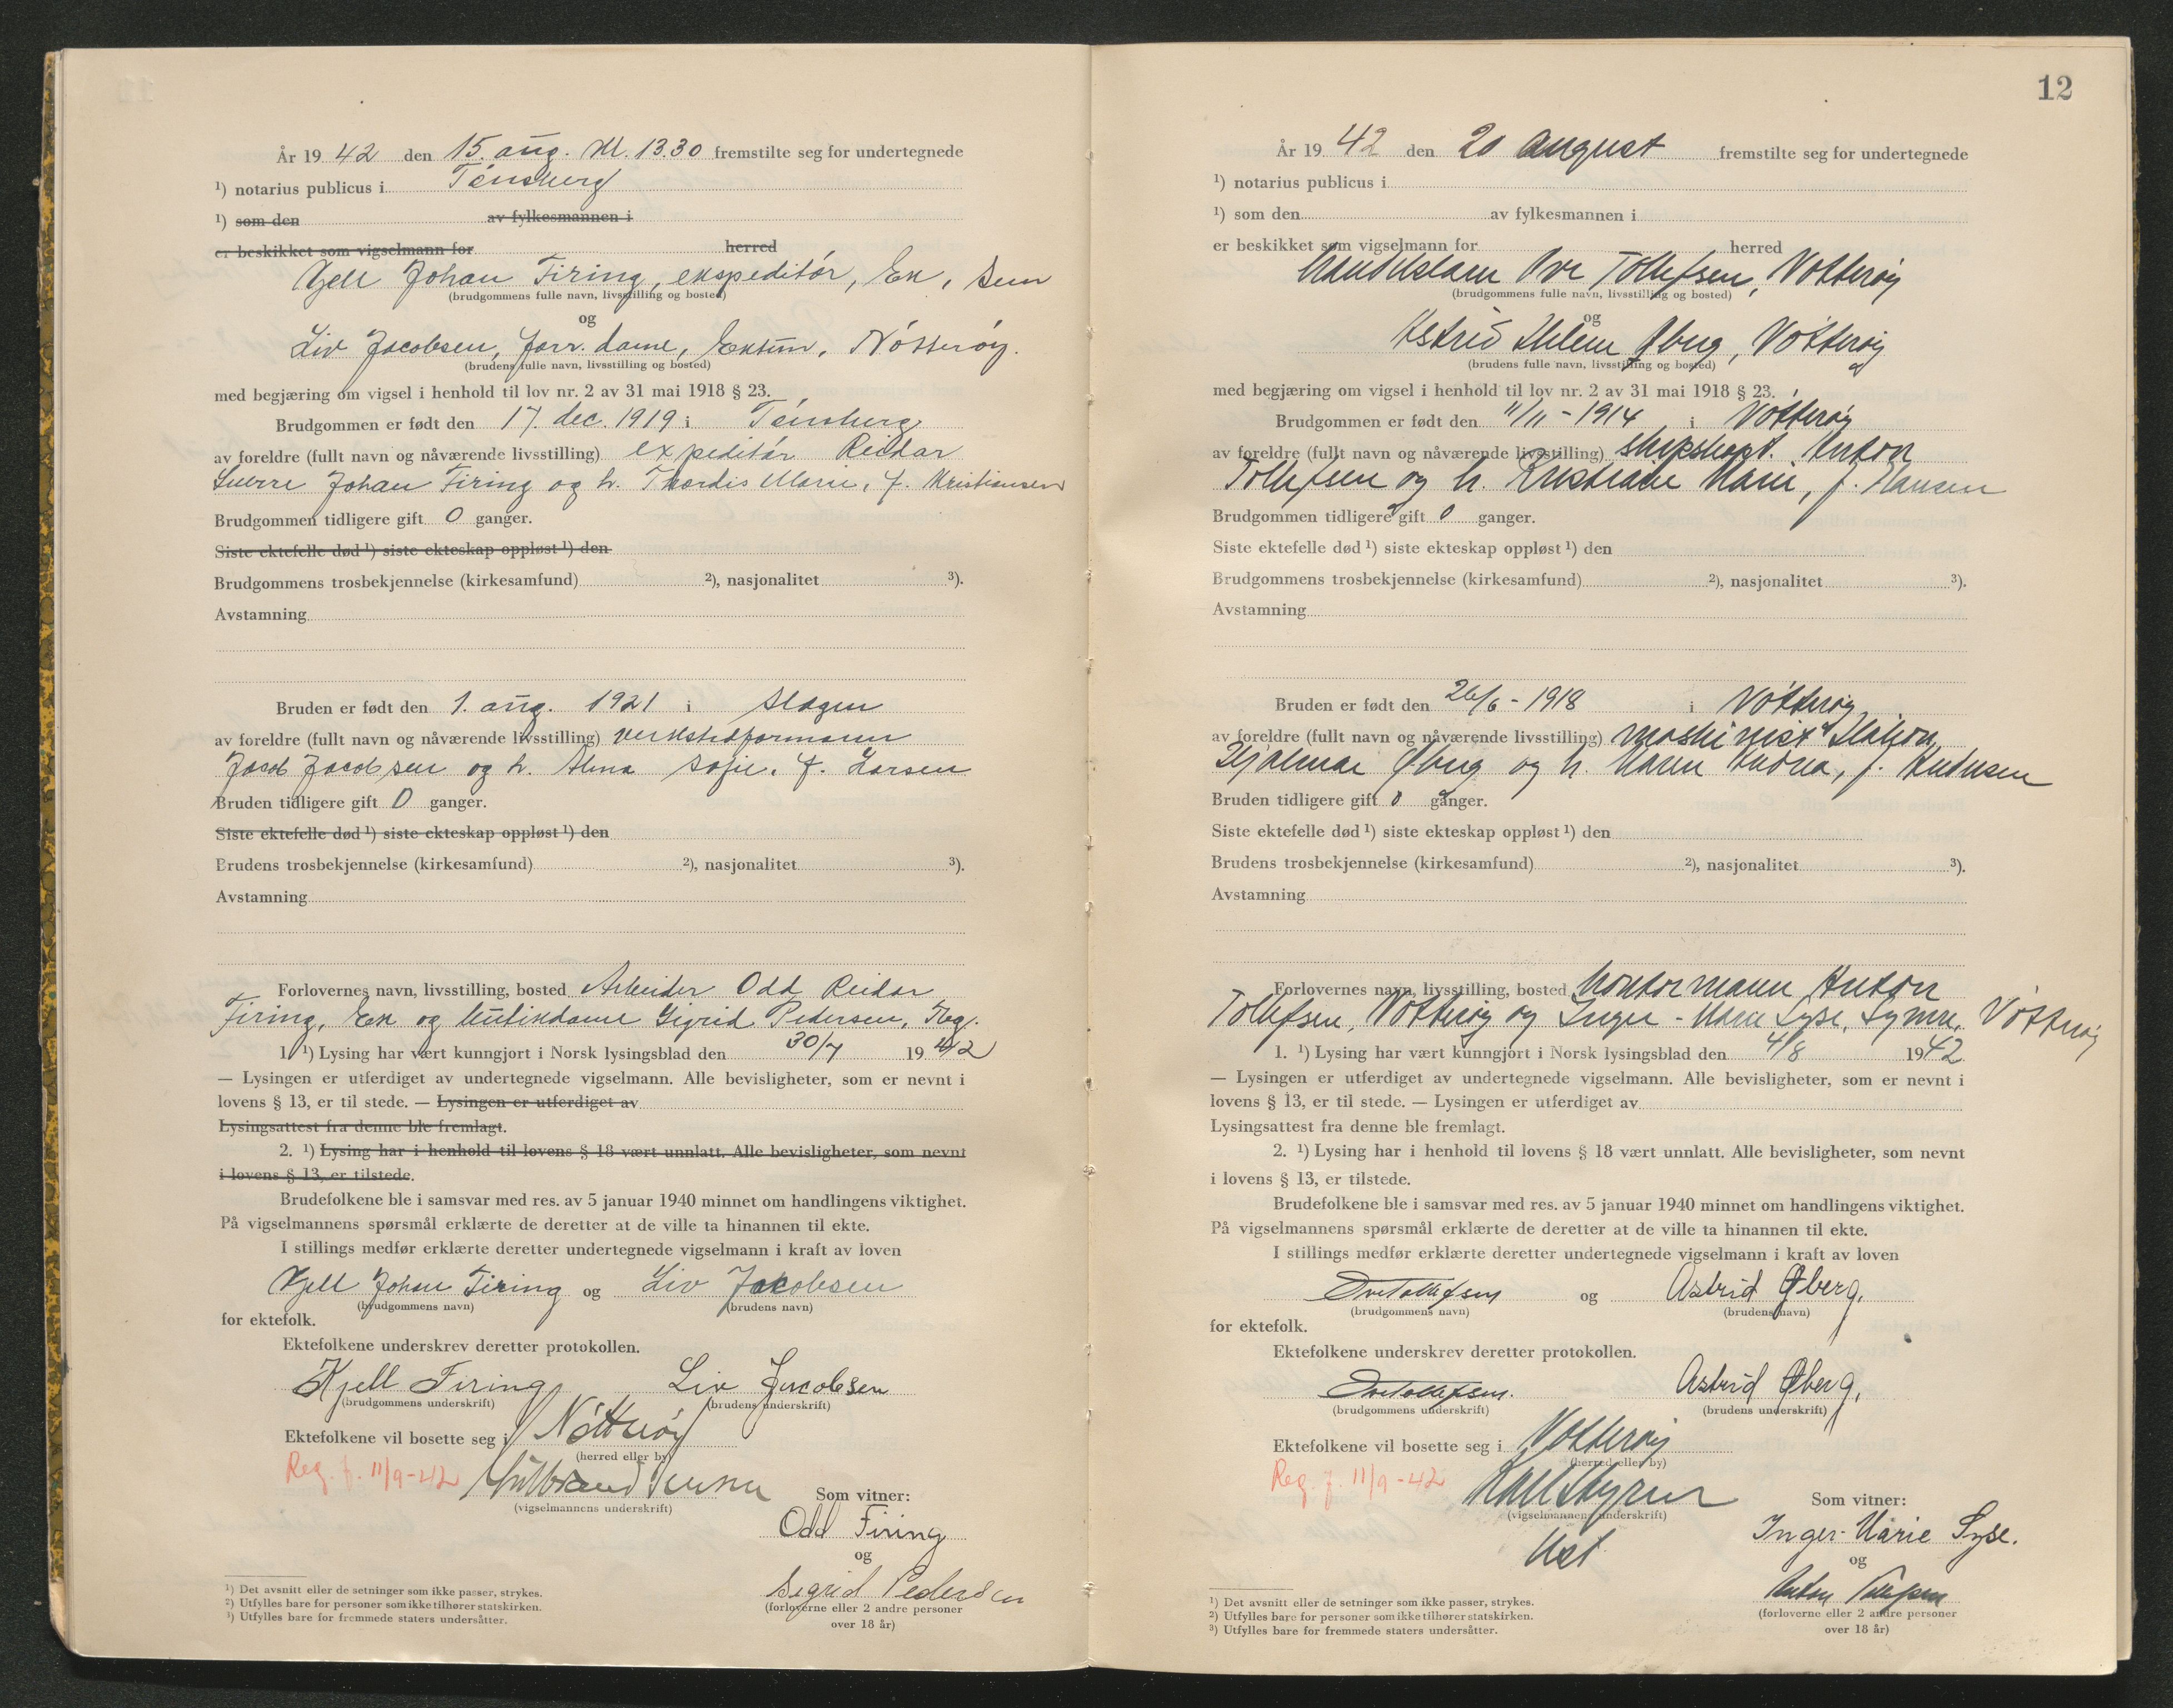 År 19 42 den 15. aug. kl. 13.30 fremstilte seg for undertegnede
¹) notarius publicus i Tønsberg
¹) som den av fylkesmannen i
er beskikket som vigselmann for herred
Kjell Johan Firing, ekspeditör, Ek, Sem
(brudgommens fulle navn, livsstilling og bosted)
og
Liv Jacobsen, forr. dame, Eknes, Nötteröy.
(brudens fulle navn, livsstilling og bosted)
med begjæring om vigsel i henhold til lov nr. 2 av 31 mai 1918 § 23.
Brudgommen er født den 17. dec. 1919 i Tönsberg
av foreldre (fullt navn og nåværende livsstilling) expeditör Reidar
Sverre Johan Firing og h. Thordis Marie, f. Kristiansen
Brudgommen tidligere gift 0 ganger.
Siste ektefelle død ¹) siste ekteskap oppløst ¹) den
Brudgommens trosbekjennelse (kirkesamfund) ²), nasjonalitet ³).
Avstamning
Bruden er født den 1. aug. 1921 i Slagen
av foreldre (fullt navn og nåværende livsstilling) verkstedformann
Jacob Jacobsen og h. Alma Sofie, f. Larsen
Bruden tidligere gift 0 ganger.
Siste ektefelle død ¹) siste ekteskap oppløst ¹) den
Brudens trosbekjennelse (kirkesamfund) ²), nasjonalitet ³).
Avstamning
Forlovernes navn, livsstilling, bosted Arbeider Odd Reidar
Firing, Ek og butikdame Sigrid Pedersen, Tbg.
1. ¹) Lysing har vært kunngjort i Norsk lysingsblad den 30/7 19 42
— Lysingen er utferdiget av undertegnede vigselmann. Alle bevisligheter, som er nevnt i
lovens § 13, er til stede. — Lysingen er utferdiget av
Lysingsattest fra denne ble fremlagt.
2. ¹) Lysing har i henhold til lovens § 18 vært unnlatt. Alle bevisligheter, som nevnt
i lovens § 13, er tilstede.
Brudefolkene ble i samsvar med res. av 5 januar 1940 minnet om handlingens viktighet.
På vigselmannens spørsmål erklærte de deretter at de ville ta hinannen til ekte.
I stillings medfør erklærte deretter undertegnede vigselmann i kraft av loven
Kjell Johan Firing og Liv Jakobsen
(brudgommens navn) (brudens navn)
for ektefolk.
Ektefolkene underskrev deretter protokollen.
Kjell Firing Liv Jacobsen
(brudgommens underskrift) (brudens underskrift)
Ektefolkene vil bosette seg i Nötteröy
(herred eller by)
Reg. f. 11/9-42
(vigselmannens underskrift)
Som vitner:
Odd Firing
og
Sigrid Pedersen
(forloverne eller 2 andre personer
over 18 år)
¹) Det avsnitt eller de setninger som ikke passer, strykes.
²) Utfylles bare for personer som ikke tilhører statskirken.
³) Utfylles bare for fremmede staters undersåtter.
12
År 19 42 den 20 august fremstilte seg for undertegnede
¹) notarius publicus i
¹) som den av fylkesmannen i
er beskikket som vigselmann for herred
Ove Tollefsen, Nötteröy
(brudgommens fulle navn, livsstilling og bosted)
og
Astrid Helene Øberg, Nötteröy
(brudens fulle navn, livsstilling og bosted)
med begjæring om vigsel i henhold til lov nr. 2 av 31 mai 1918 § 23.
Brudgommen er født den 11/11 - 1914 i Nötteröy
av foreldre (fullt navn og nåværende livsstilling) skipskapt. Anton
Tollefsen og h. Kristiane Marie, f. Hansen
Brudgommen tidligere gift 0 ganger.
Siste ektefelle død ¹) siste ekteskap oppløst ¹) den
Brudgommens trosbekjennelse (kirkesamfund) ²), nasjonalitet ³).
Avstamning
Bruden er født den 26/6 - 1918 i Nötteröy
av foreldre (fullt navn og nåværende livsstilling) maskinist Håkon
Hjalmar Øberg og h. Andrea, f. Andersen
Bruden tidligere gift 0 ganger.
Siste ektefelle død ¹) siste ekteskap oppløst ¹) den
Brudens trosbekjennelse (kirkesamfund) ²), nasjonalitet ³).
Avstamning
Forlovernes navn, livsstilling, bosted kontormann Anton
Tollefsen, Nötteröy og Inger-Marie Syse, Nötteröy
1. ¹) Lysing har vært kunngjort i Norsk lysingsblad den 4/8 1942
— Lysingen er utferdiget av undertegnede vigselmann. Alle bevisligheter, som er nevnt i
lovens § 13, er til stede. — Lysingen er utferdiget av
Lysingsattest fra denne ble fremlagt.
2. ¹) Lysing har i henhold til lovens § 18 vært unnlatt. Alle bevisligheter, som nevnt
i lovens § 13, er tilstede.
Brudefolkene ble i samsvar med res. av 5 januar 1940 minnet om handlingens viktighet.
På vigselmannens spørsmål erklærte de deretter at de ville ta hinannen til ekte.
I stillings medfør erklærte deretter undertegnede vigselmann i kraft av loven
Ove Tollefsen og Astrid Øberg.
(brudgommens navn) (brudens navn)
for ektefolk.
Ektefolkene underskrev deretter protokollen.
Ove Tollefsen. Astrid Øberg.
(brudgommens underskrift) (brudens underskrift)
Ektefolkene vil bosette seg i Nötteröy
(herred eller by)
Reg. f. 11/9-42
(vigselmannens underskrift)
Som vitner:
Inger-Marie Syse.
og
Anton Tollefsen
(forloverne eller 2 andre personer
over 18 år)
¹) Det avsnitt eller de setninger som ikke passer, strykes.
²) Utfylles bare for personer som ikke tilhører statskirken.
³) Utfylles bare for fremmede staters undersåtter.